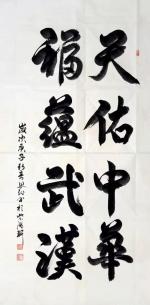 天佑中華
福蘊武漢
歲次庚子初春